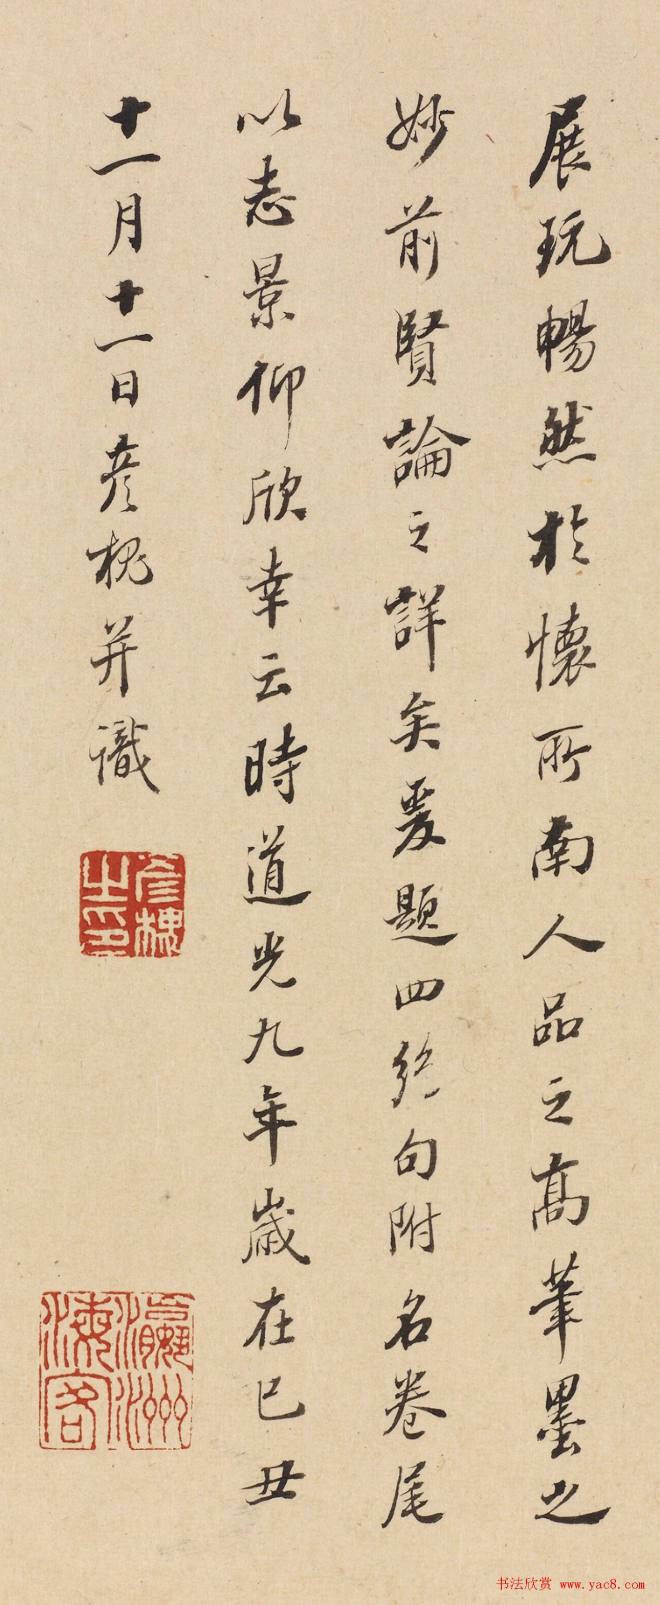 展玩暢然於懷所南人品之高筆墨之
妙前賢論之詳矣爰題四絕句附名卷尾
以志景仰欣幸云時道光九年歲在己丑
十一月十一日彥槐并識
彥槐之印
瀛洲海客
书法欣赏 www.yac8.com